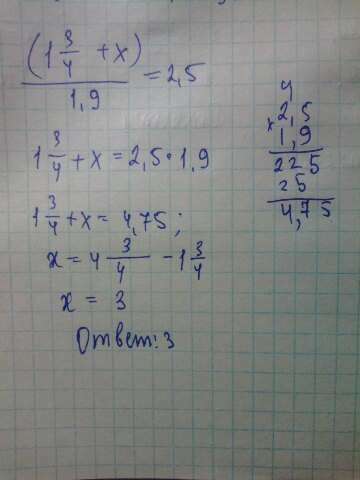 (1 3/4 + x)
/ 1,9 = 2,5
1 3/4 + x = 2,5 · 1,9
1 3/4 + x = 4,75;
x = 4 3/4 - 1 3/4
x = 3
Ответ: 3
4
2,5
× 1,9
225
25
4,75